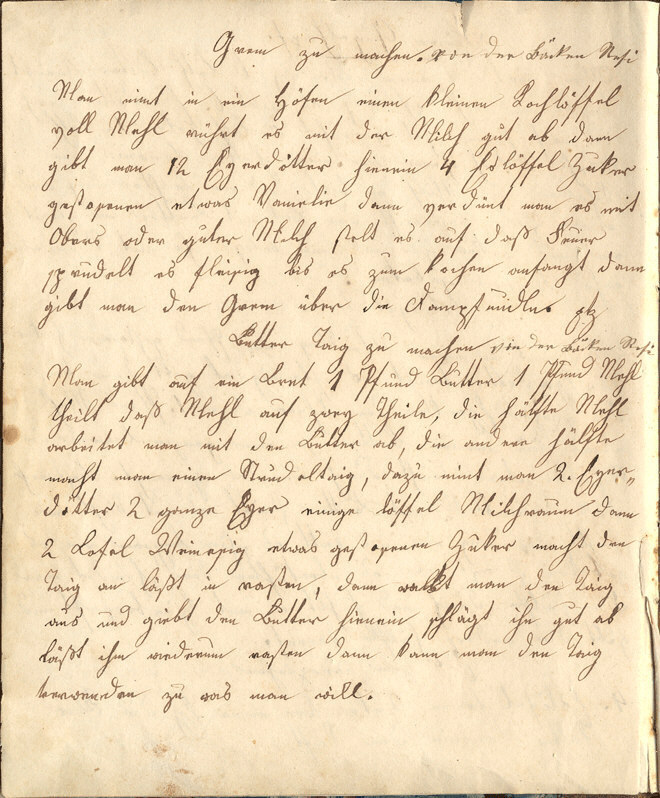 Grem zu machen. von der Bäcken Resi
Man nimt in ein Höfen einen kleinen Kochlöffel
voll Mehl rührt es mit der Milch gut ab dann
gibt man 12 Eyerdötter hienein 4 Eslöffel Zuker
gestosenen etwas Vanielie dann verdünt man es mit
Obers oder guter Milch stelt es auf daß Feuer
sprudelt es fleisig bis es zum kochen anfangt dann
gibt man den Grem über die Dampfnudln
Butter Taig zu machen von der Bäcken Resi
Man gibt auf ein Bret 1 Pfund Butter 1 Pfund Mehl
theilt daß Mehl auf zwey Theile, die hälfte Mehl
arbeitet man mit den Butter ab, die andere hälfte
macht man einen Strudeltaig, dazu nimt man 2. Eyer„
dötter 2 ganze Eyer einige löffel Milchraum dann
2 Lofel Weinesig etwas gestosenen Zuker macht den
Taig an läßt in rasten, dann walkt man den Taig
aus und giebt den Butter hienein schlägt ihn gut ab
läßt ihm wiederum rasten dann kann man den Taig
verwenden zu was man will.